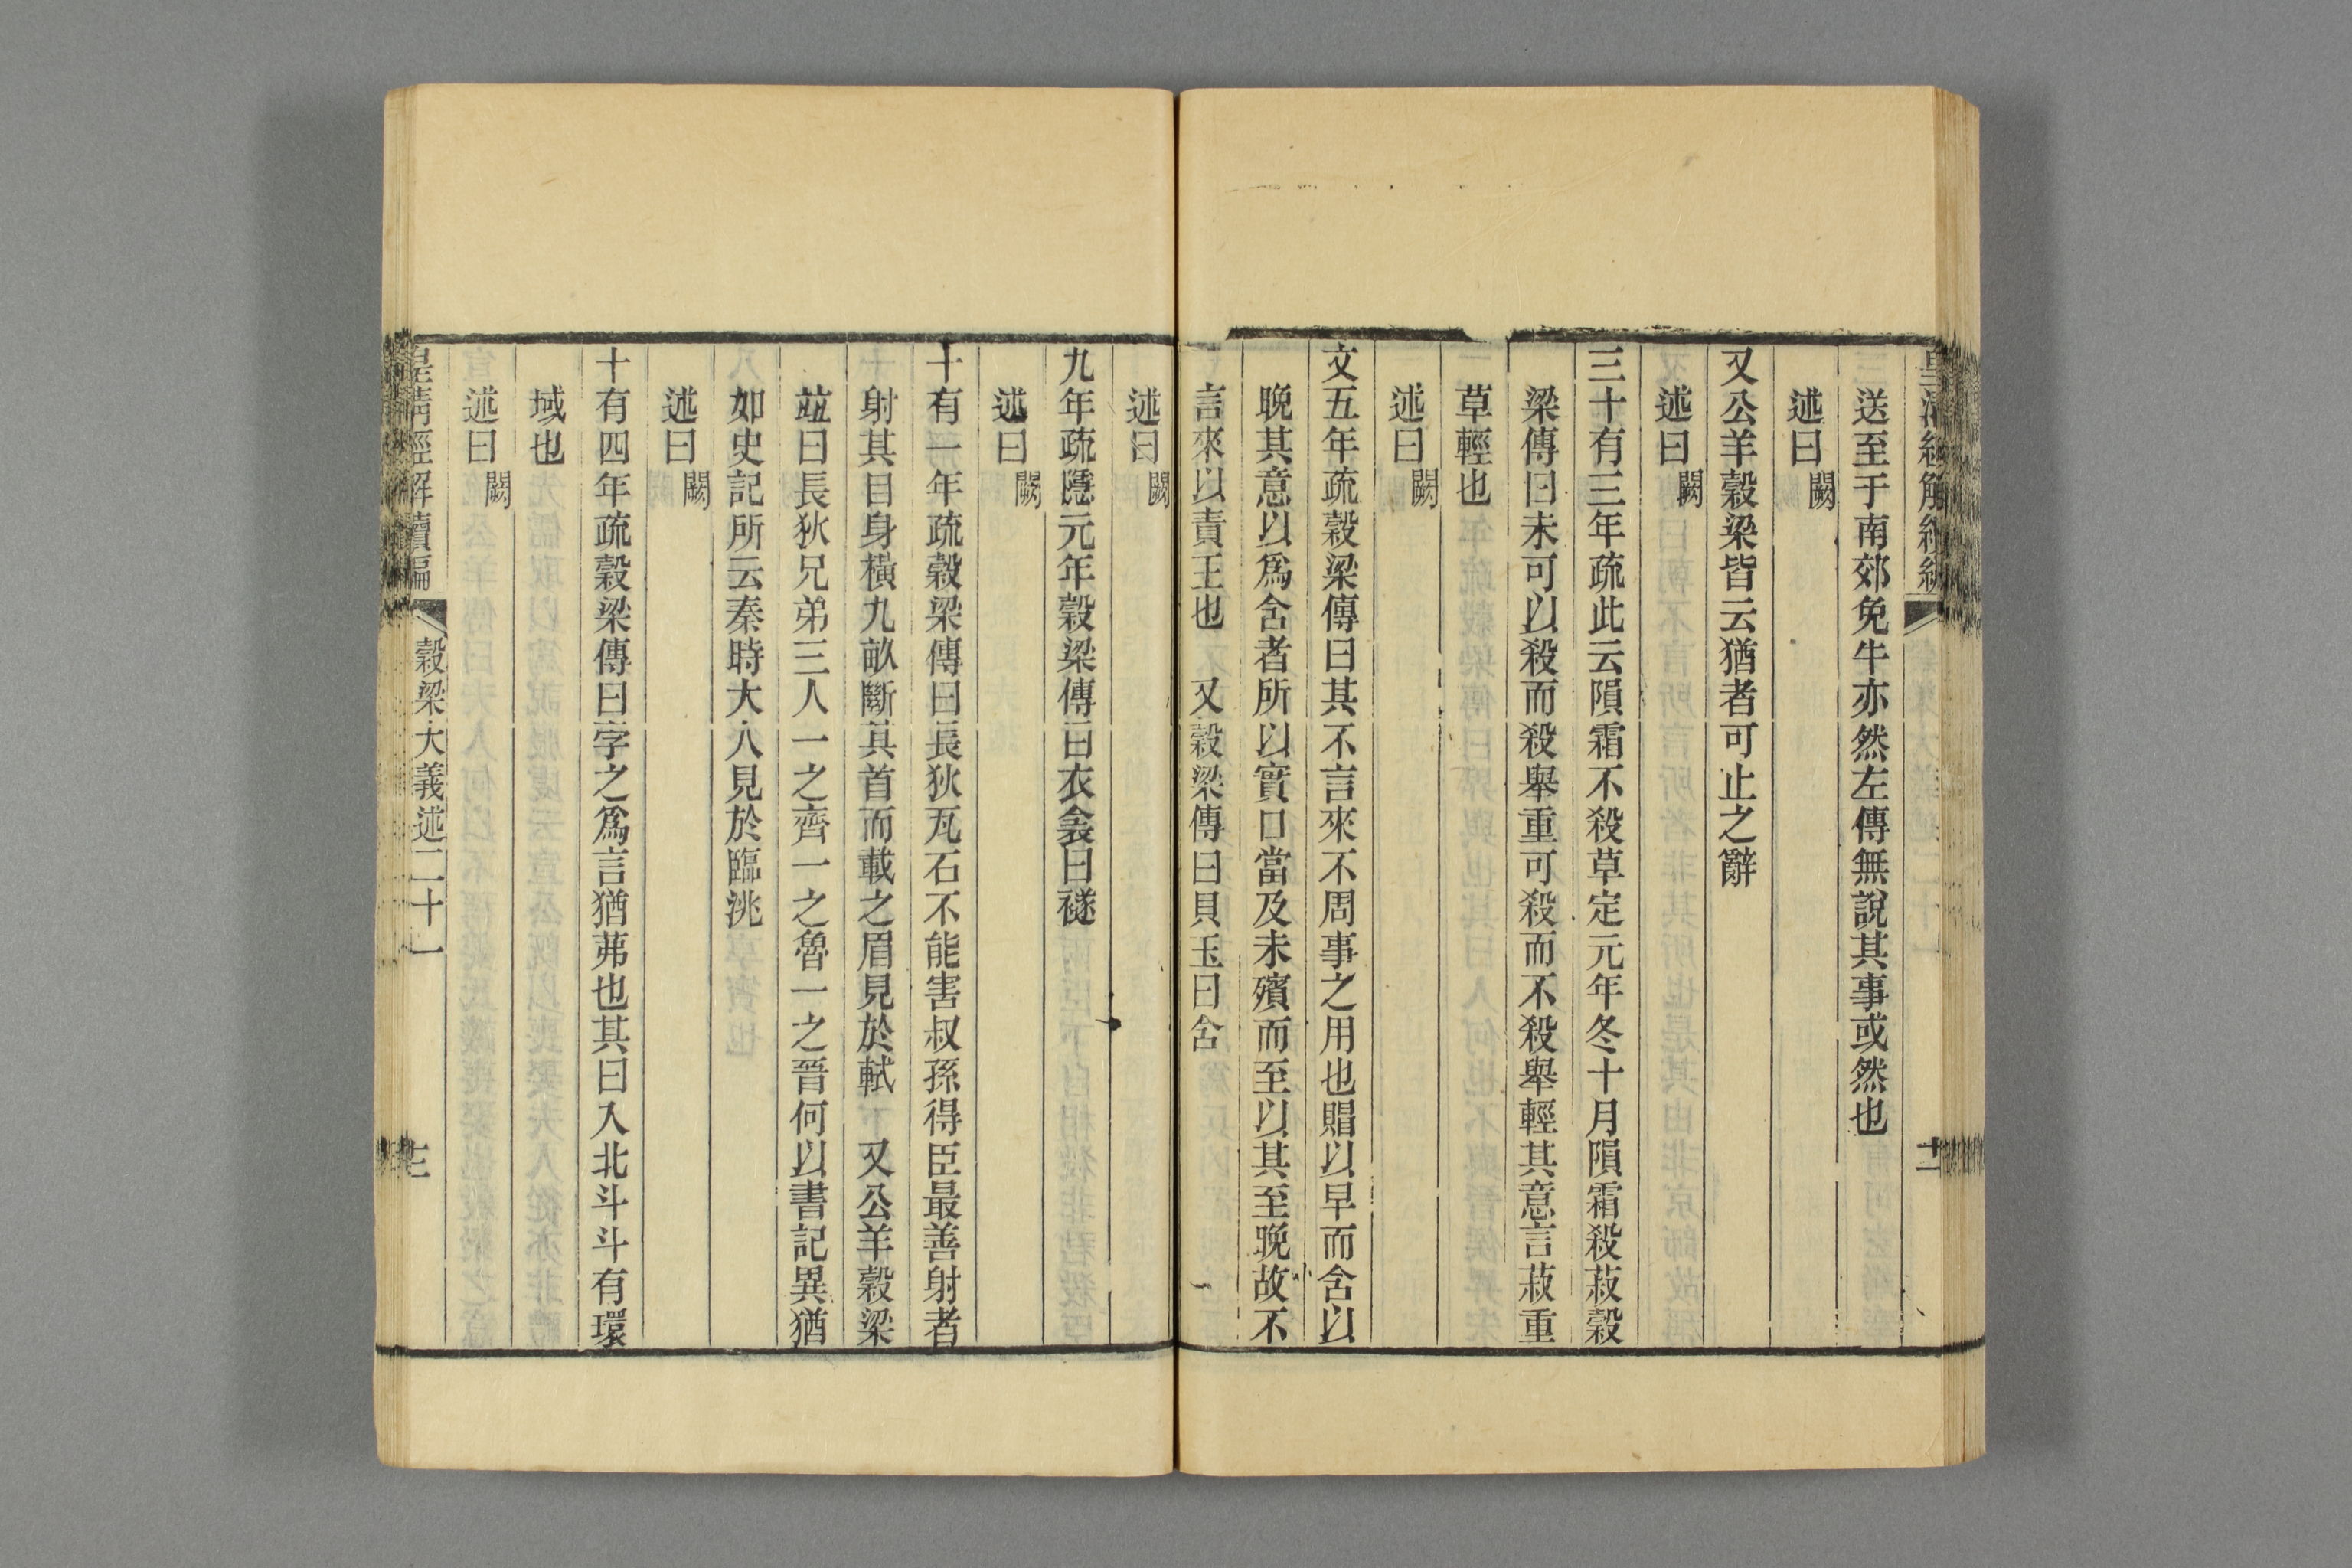 送至于南郊免牛亦然左傳無說其事或然也
述曰闕
又公羊穀梁皆云猶者可止之辭
述曰闕
三十有三年疏此云隕霜不殺草定元年冬十月隕霜殺菽穀
梁傳曰未可以殺而殺舉重可殺而不殺舉輕其意言菽重
草輕也
述曰闕
文五年疏穀梁傳曰其不言來不周事之用也賵以早而含以
晚其意以爲含者所以實口當及未殯而至以其至晚故不
言來以責王也　又穀梁傳曰貝玉曰含
述曰闕
九年疏隱元年穀梁傳曰衣衾曰襚
述曰闕
十有一年疏穀梁傳曰長狄瓦石不能害叔孫得臣最善射者
射其目身橫九畝斷其首而載之眉見於軾　又公羊穀梁
竝曰長狄兄弟三人一之齊一之魯一之晉何以書記異猶
如史記所云秦時大人見於臨洮
述曰闕
十有四年疏穀梁傳曰孛之爲言猶茀也其曰入北斗斗有環
域也
述曰闕
皇清經解續編　穀梁大義述二十一　十三